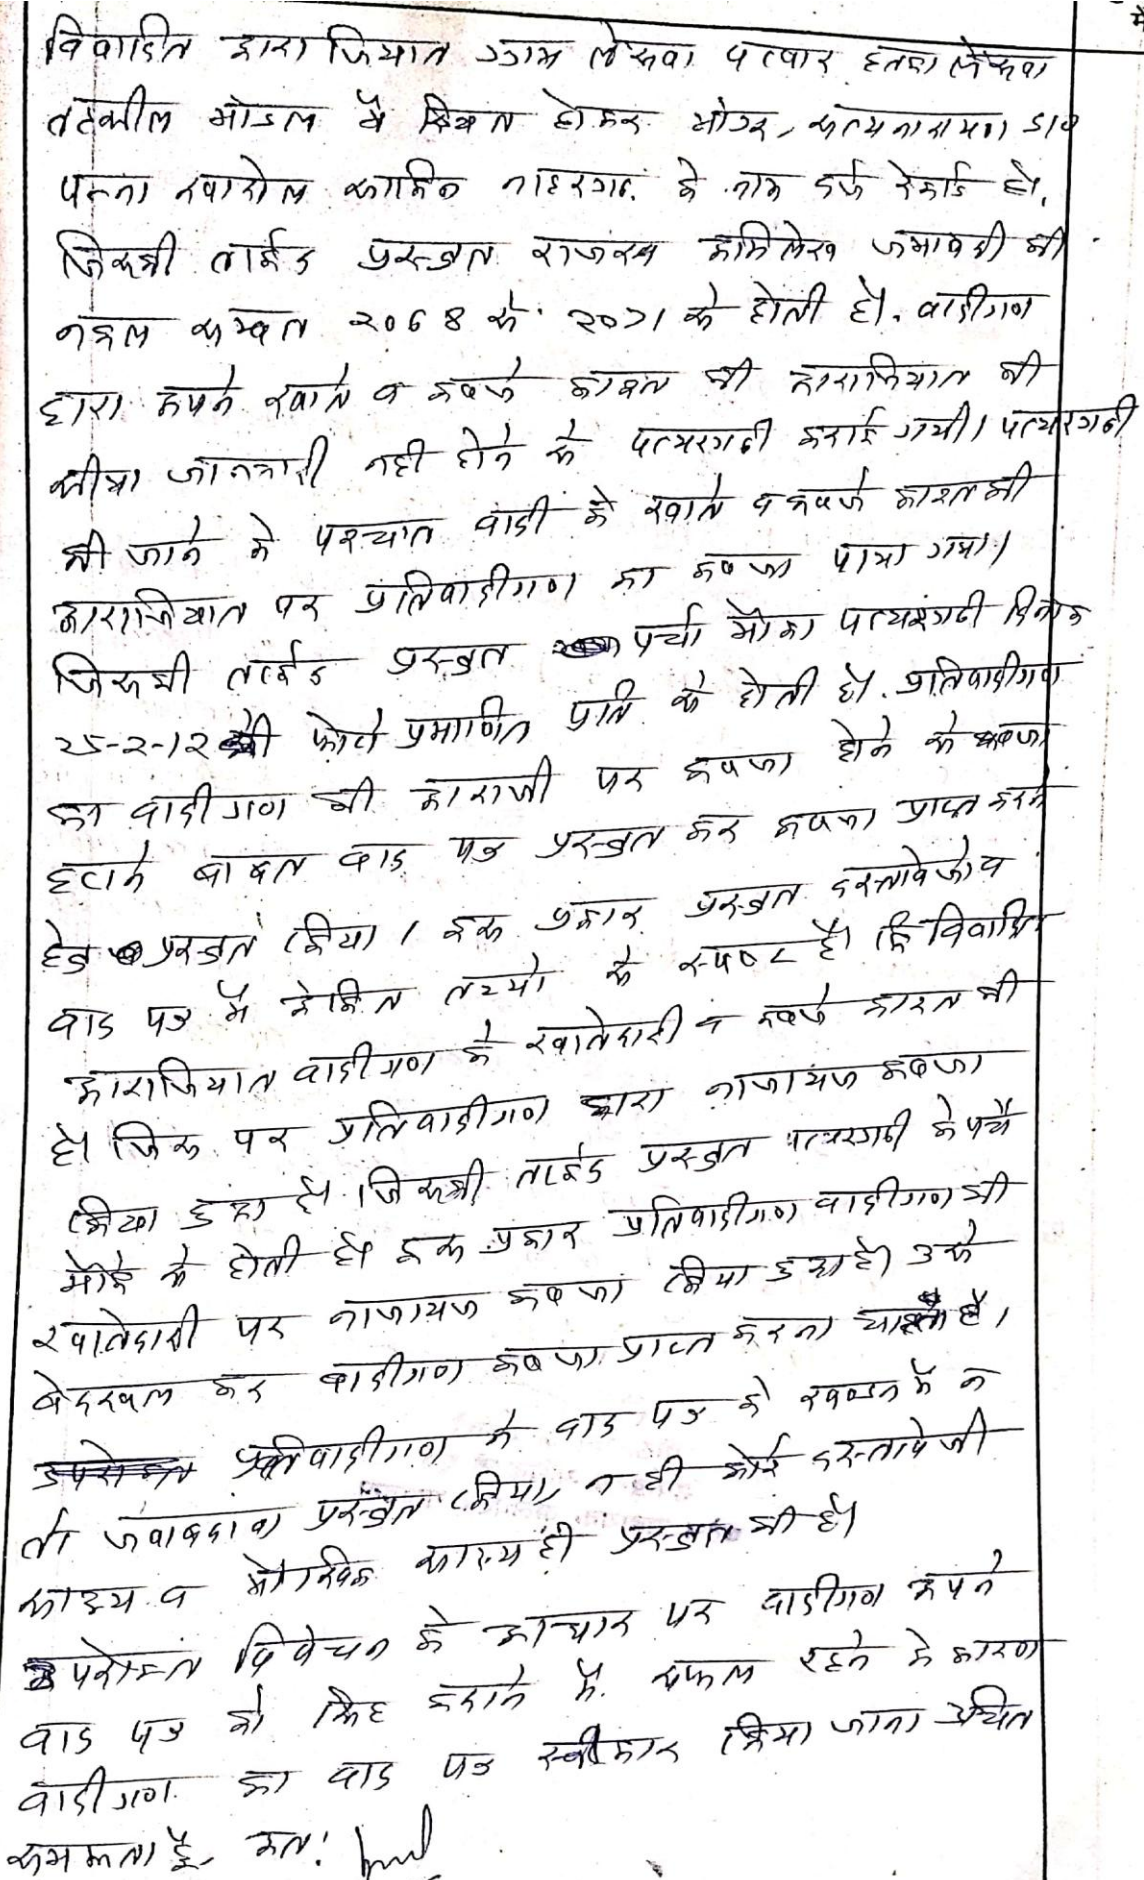 विवादित आराजियात ग्राम लेसवा पटवार हल्का लेसवा
तहसील मांडल में स्थित होकर सत्यनारायण
पन्ना साकिन नाहरगढ़ के नाम दर्ज रेकार्ड है,
जिसकी ताईद प्रस्तुत राजस्व अभिलेख जमाबंदी की
नकल सम्वत २०६८ से २०७१ से होती है. वादीगण
द्वारा अपने खाते व कब्जे काश्त की आराजियात की
सीमा जानकारी नही होने से पत्थरगढी कराई गयी। पत्थरगढी
की जाने के पश्चात वादी के खाते व कब्जे काश्त की
आराजियात पर प्रतिवादीगण का कब्जा पाया गया।
जिसकी ताईद प्रस्तुत पर्चा मौका पत्थरगढी दिनांक
२५-२-१२ की फोटो प्रमाणित प्रति से होती है. प्रतिवादीगण
का वादीगण की आराजी पर कब्जा होने से कब्जा
हटाने बाबत वाद पत्र प्रस्तुत कर कब्जा प्राप्त करने
हेतु प्रस्तुत किया। इस प्रकार प्रस्तुत दस्तावेजो व
वाद पत्र में अंकित तथ्यो से स्पष्ट है कि विवादित
आराजियात वादीगण के खातेदारी व कब्जे काश्त की
है। जिस पर प्रतिवादीगण द्वारा नाजायज कब्जा
किया हुआ है। जिसकी ताईद प्रस्तुत पत्थरगढी के पर्चे
मौके से होती है। इस प्रकार प्रतिवादीगण वादीगण की
खातेदारी पर नाजायज कब्जा किया हुआ है। उसे
बेदखल कर वादीगण कब्जा प्राप्त करना चाहते है।
प्रतिवादीगण ने वाद पत्र के खण्डन में न
तो जवाबदावा प्रस्तुत किया, न ही कोई दस्तावेजी
साक्ष्य व मौखिक साक्ष्य ही प्रस्तुत की है।
उपरोक्त विवेचन के आधार पर वादीगण अपने
वाद पत्र को सिद्ध कराने में सफल रहने के कारण
वादीगण का वाद पत्र स्वीकार किया जाना उचित
समझता है, अतः